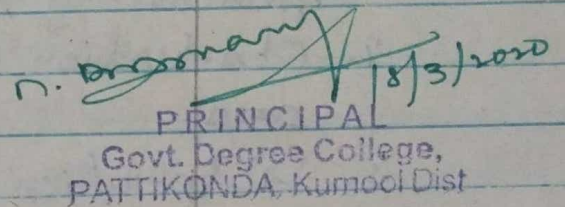 18/3/2020
PRINCIPAL
Govt. Degree College,
PATTIKONDA, Kurnool Dist